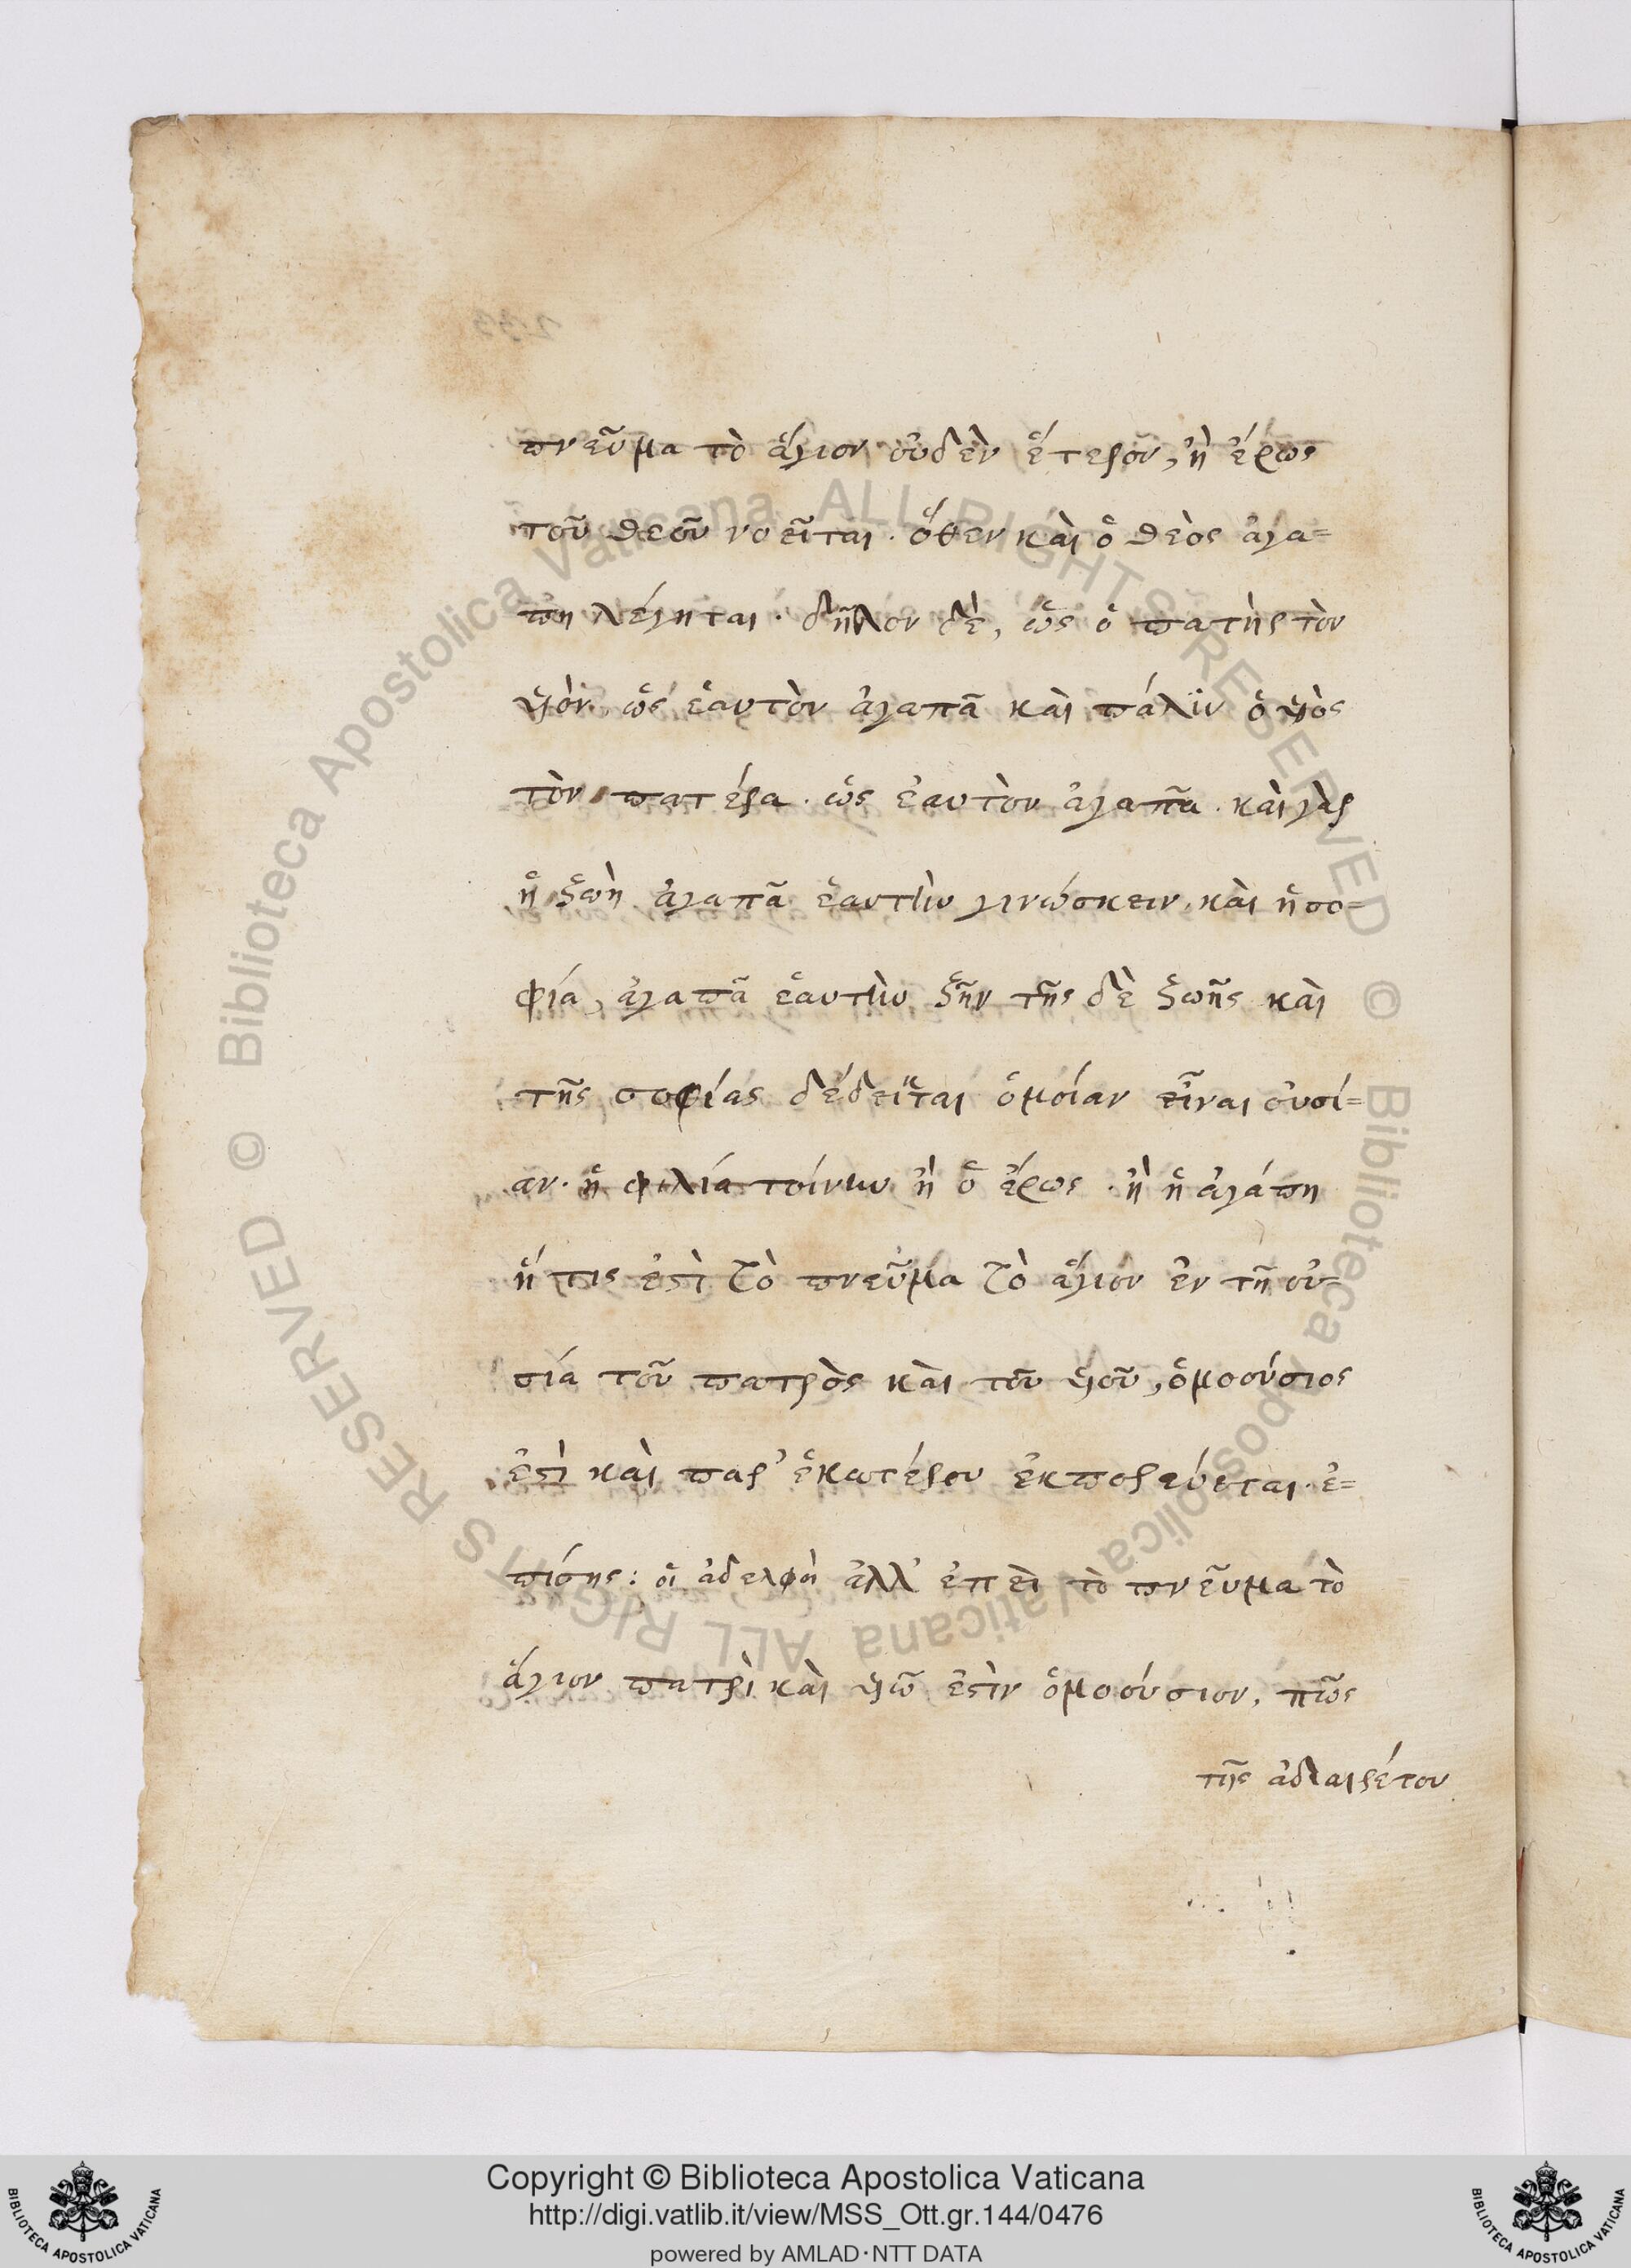 πνεῦμα τὸ ἅγιον οὐδὲν ἕτερον, ἢ ἔρως
τοῦ θεοῦ νοεῖται· ὅθεν καὶ ὁ θεὸς ἀγα=
πη λέγηται· δῆλον δὲ, ὡς ὁ πατὴρ τὸν
ὑιὸν ὡς ἑαυτὸν ἀγαπᾶ καὶ πάλϊν ὁ ὑιὸς
τὸν πατέρα· ὡς ἑαυτὸν ἀγαπᾶ· καὶ γὰρ
ἡ ζωὴ ἀγαπᾶ ἑαυτὴν γινώσκειν· καὶ ἡ σο=
φία, ἀγαπᾶ ἑαυτὴν ζῆν τῆς δὲ ζωῆς καὶ
τῆς σοφίας δέδεϊται ὁμοίαν εἶναι οὐσί=
αν· ἡ φιλία τοίνυν ἢ ὁ ἔρως· ἢ ἡ ἀγάπη
ἥτις ἐστὶ τὸ πνεῦμα τὸ ἅγιον ἐν τῆ οὐ=
σία τοῦ πατρὸς καὶ τοῦ ὑιοῦ, ὁμοούσιος
ἐστὶ καὶ παρ' ἑκατέρου ἐκπορεύεται· ἐ=
πίσης: οἱ ἀδελφὴ ἀλλ' ἐπεὶ τὸ πνεῦμα τὸ
ἅγιον πατρὶ καὶ ὑιῶ ἐστὶν ὁμοούσιον, πῶς
τῆς ἀδιαιρέτου
Copyright © Biblioteca Apostolica Vaticana
http://digi.vatlib.it/view/MSS_Ott.gr.144/0476
powered by AMLAD·NTT DATA
BIBLIOTECA APOSTOLICA VATICANA
BIBLIOTECA APOSTOLICA VATICANA
© Biblioteca Apostolica Vaticana ALL RIGHTS RESERVED © Biblioteca Apostolica Vaticana ALL RIGHTS RESERVED